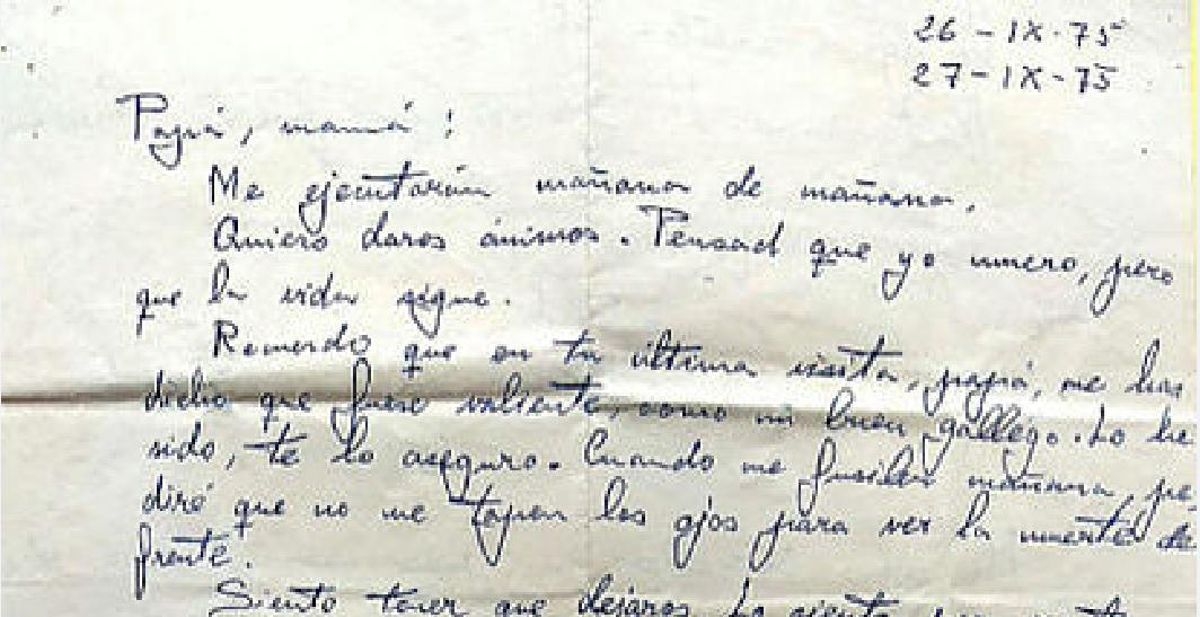 26-IX-75
27-IX-75
Papá, mamá:
Me ejecutarán mañana de mañana.
Quiero daros ánimos. Pensad que yo muero, pero
que la vida sigue.
Recuerdo que en tu última visita, papá, me has
dicho que fuese valiente, como un buen gallego. Lo he
sido, te lo aseguro. Cuando me fusilen mañana, pe
diré que no me tapen los ojos para ver la muerte de
frente.
Siento tener que dejaros. Lo siento